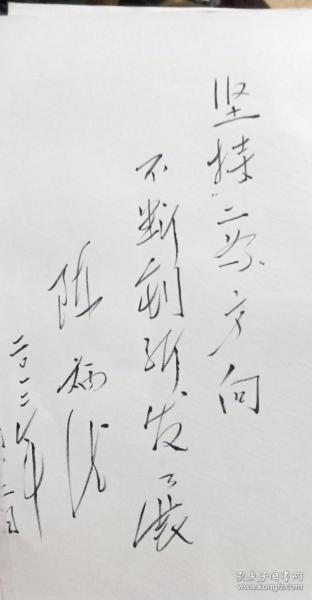 坚持"二为"方向
不断创新发展
陈
二〇一二年
孔夫子旧书网
www.kongfz.com